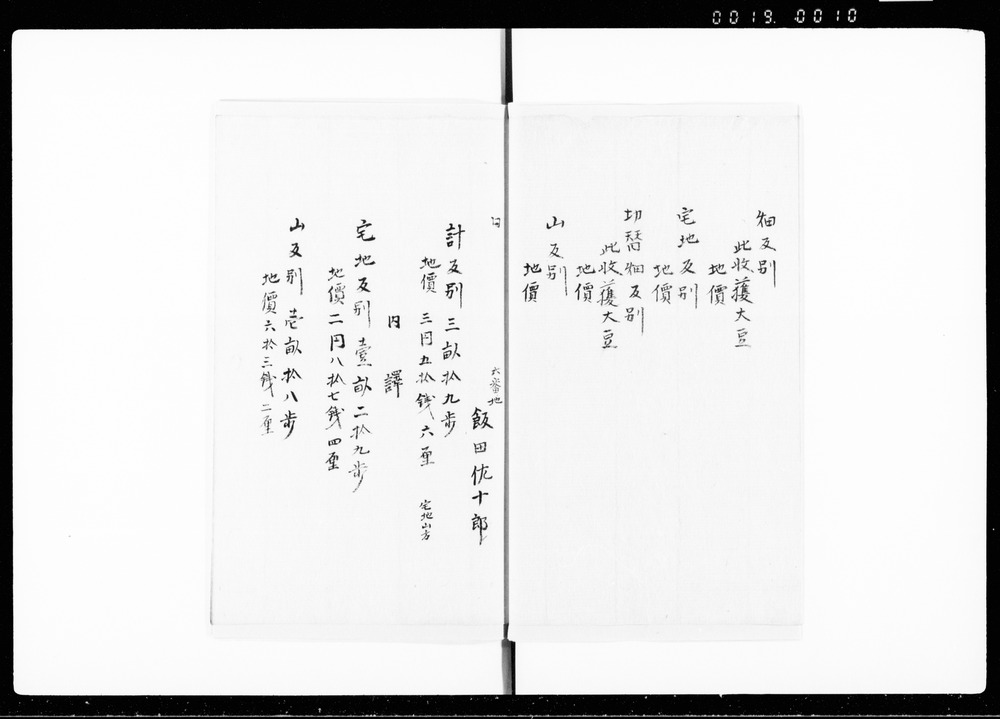 0019 0010
畑反別
此收獲大豆
地價
宅地反別
地價
切替畑反別
此收獲大豆
地價
山反別
地價
六番地
飯田佐十郎
計反別 三畝拾九歩
地價 三円五拾錢六厘
宅地山方
内 譯
宅地反別 壹畝二拾九歩
地價 二円八拾七錢四厘
山反別 壱畝拾八歩
地價 六拾三錢二厘